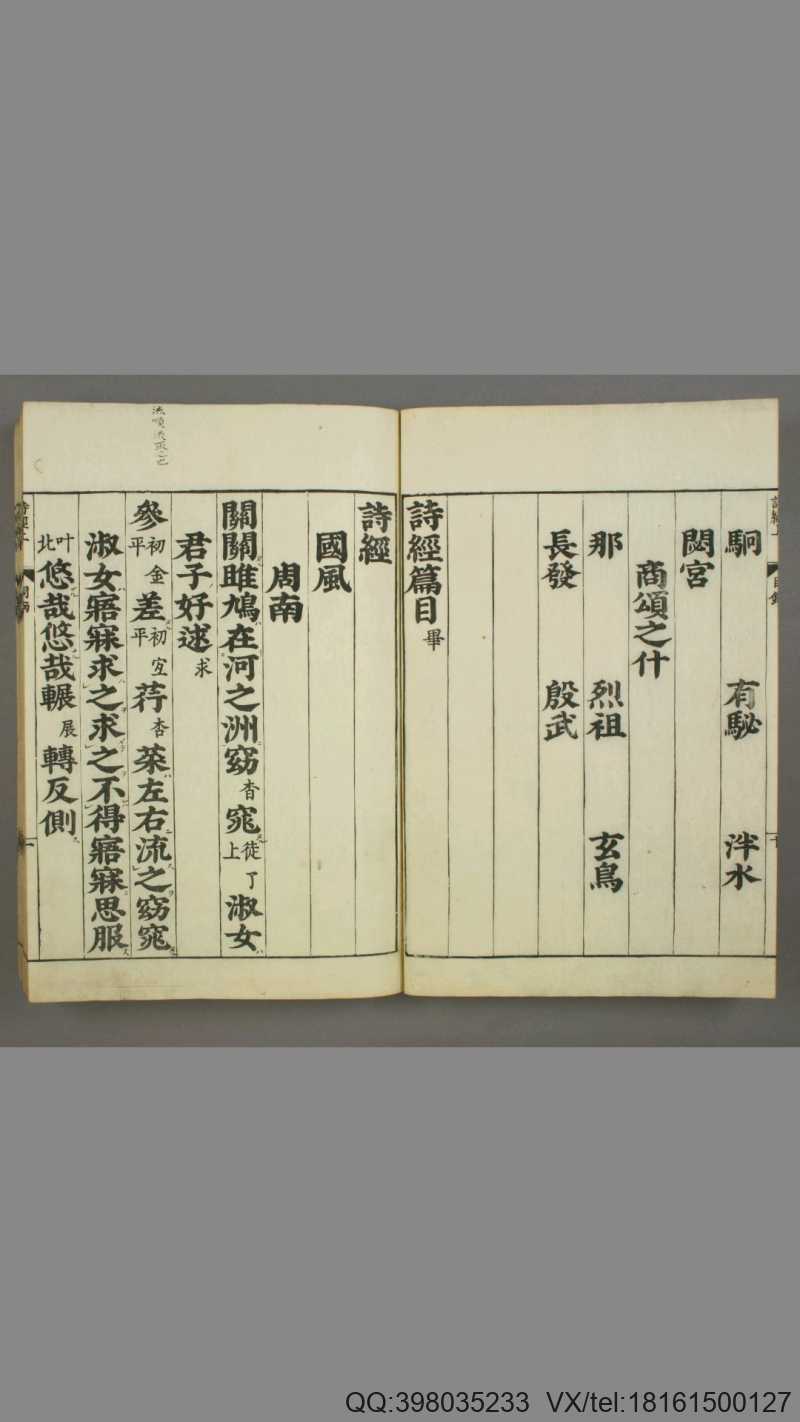 駉　有駜　泮水
閟宮
商頌之什
那　烈祖　玄鳥
長發　殷武
詩經篇目畢
詩經
國風
周南
關關雎鳩在河之洲窈杳窕徒了上淑女
君子好逑求
參初金平差初宜平荇杏菜左右流之窈窕
淑女寤寐求之求之不得寤寐思服
叶北悠哉悠哉輾展轉反側
QQ:398035233 VX/tel:18161500127